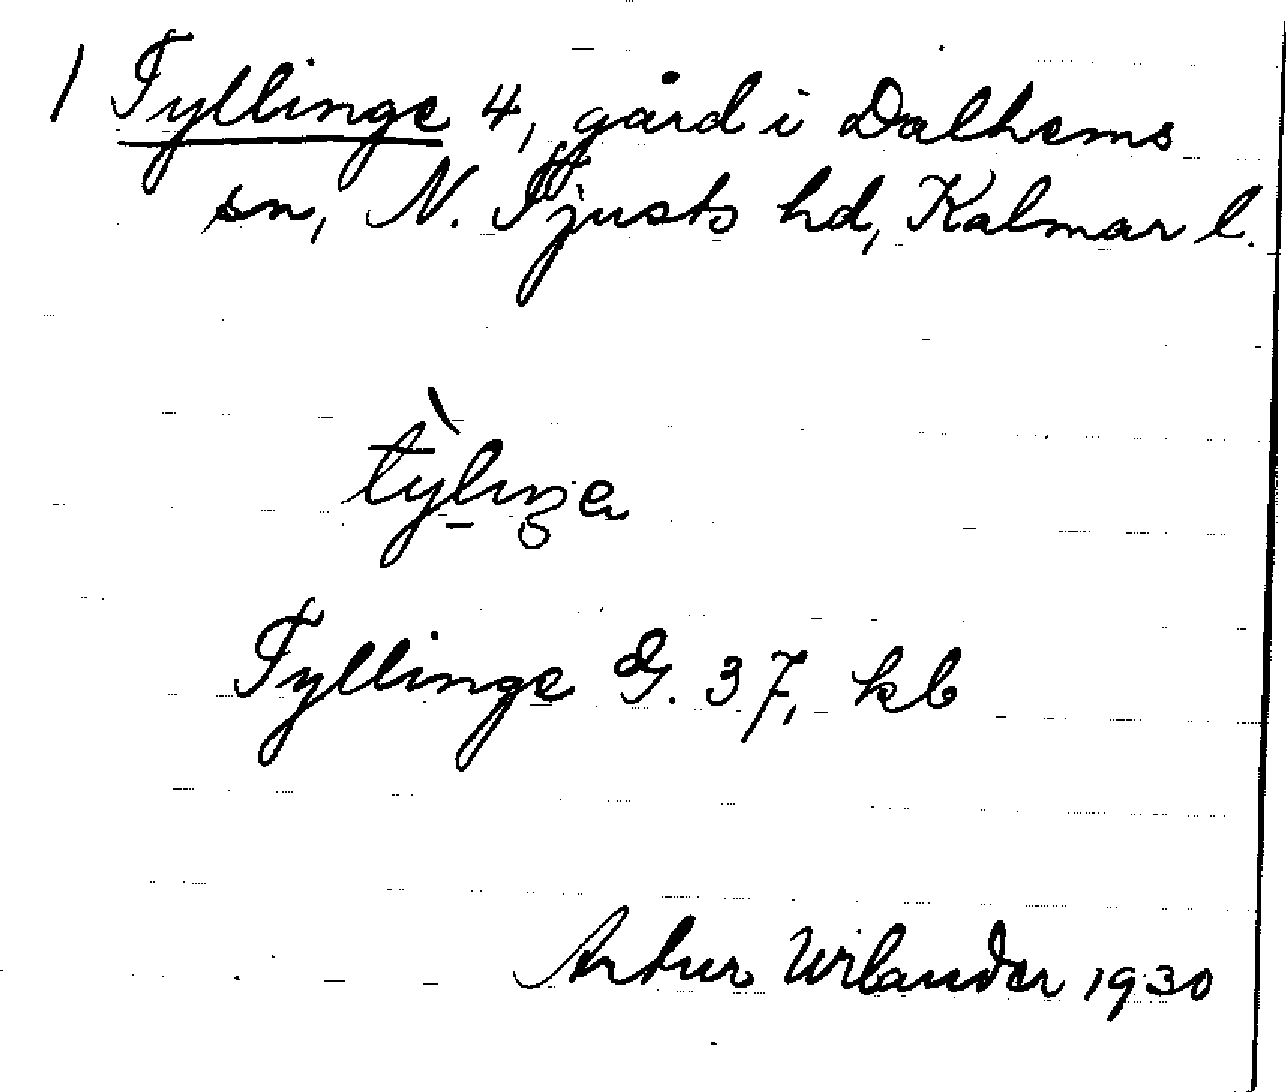 1 Tyllinge 4, gård i Dalhems
sn, N. Tjusts hd, Kalmar l.
Tyllinge G. 37, kb
Artur Wilander 1930